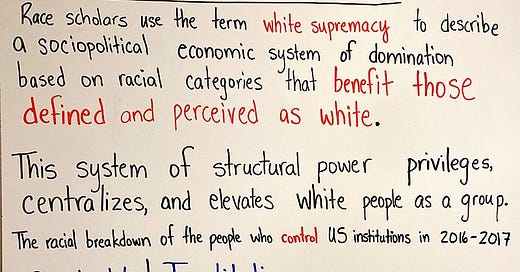 Race scholars use the term white supremacy to describe
a sociopolitical economic system of domination
based on racial categories that benefit those
defined and perceived as white.
This system of structural power privileges,
centralizes, and elevates white people as a group.
The racial breakdown of the people who control US institutions in 2016-2017